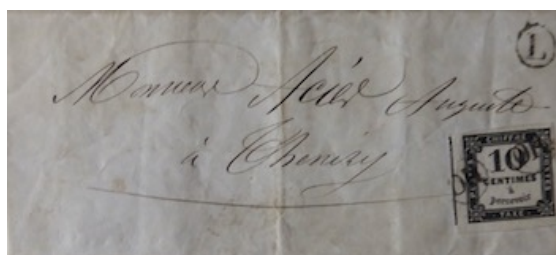 L
Monsieur Acier Auguste
à Thenisy
CHIFFRE
10
CENTIMES
à
percevoir
TAXE